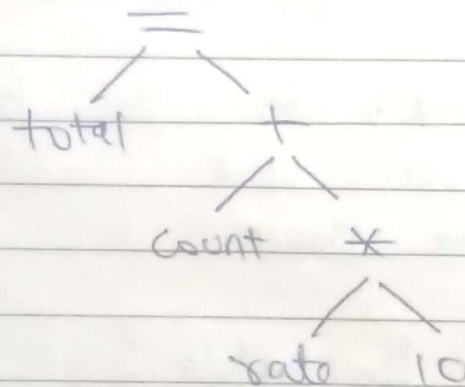 =
total +
count *
rate 10